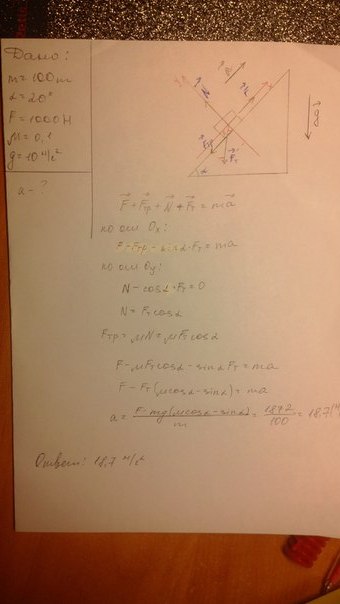 Дано:
m=100кг
α=20°
F=1000Н
μ=0,1
g=10 м/с²
a-?
F+Fтр+N+Fт=ma
по оси Ox:
F-Fтр-sinα·Fт=ma
по оси Oy:
N-cosα·Fт=0
N=Fтcosα
Fтр=μN=μFтcosα
F-μFтcosα-sinαFт=ma
F-Fт(μcosα-sinα)=ma
a=F-mg(μcosα-sinα)/m=1872/100=18,7(м
Ответ: 18,7 м/с²